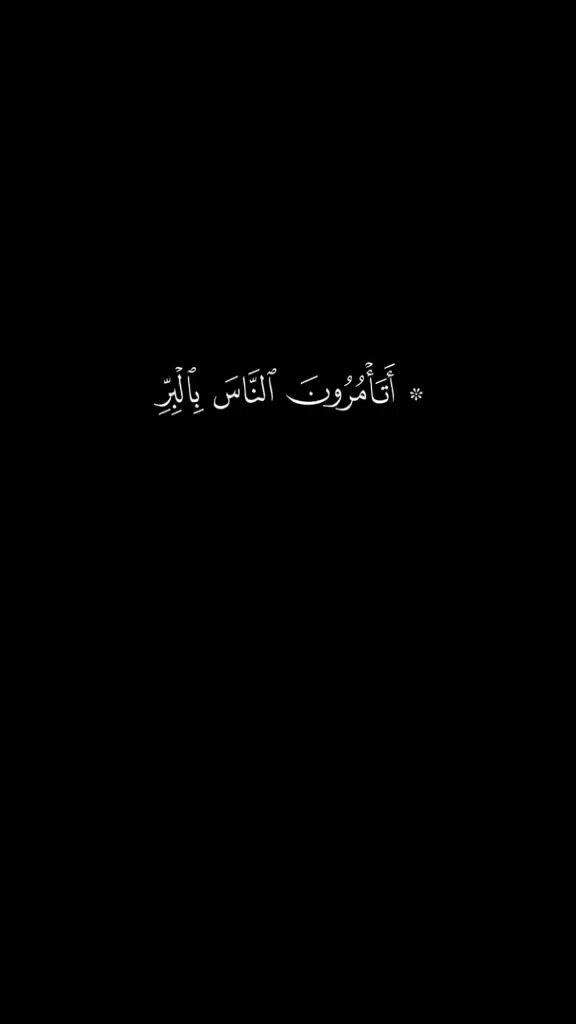 ۞ أَتَأۡمُرُونَ ٱلنَّاسَ بِٱلۡبِرِّ